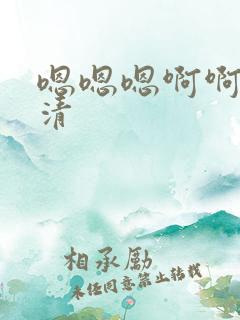 嗯嗯嗯啊啊
清
相承励
未经同意禁止转载